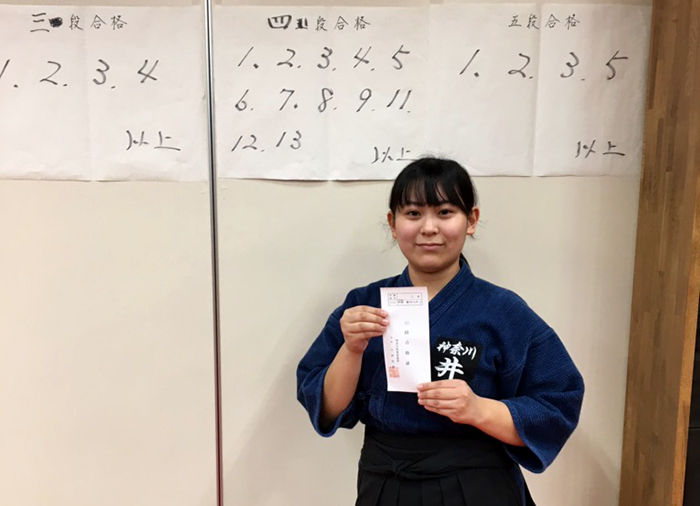 三段合格
1. 2. 3. 4
以上
四段合格
1. 2. 3. 4. 5
6. 7. 8. 9. 11.
12. 13
以上
五段合格
1. 2. 3. 5
以上
神奈川
井